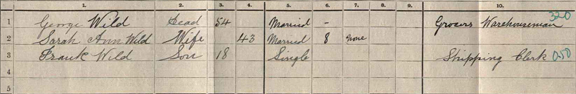 1. 2. 3. 4. 5. 6. 7. 8. 9. 10.
1 George Wild Head 54 Married - Grocers Warehouseman 320
2 Sarah Ann Wild Wife 43 Married 8 None
3 Frank Wild Son 18 Single Shipping Clerk 050
4
5